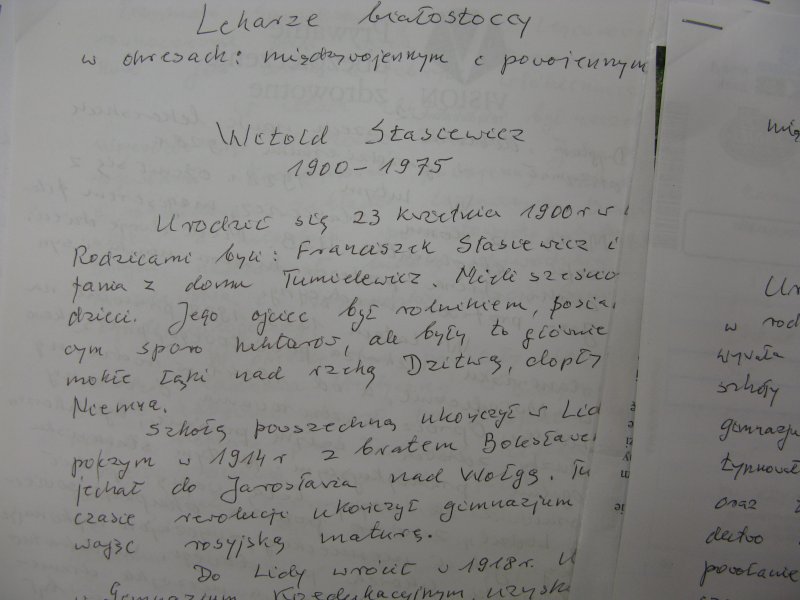 Lekarze białostoccy
w okresach: międzywojennym i powojennym
Witold Stasiewicz
1900 – 1975
Urodził się 23 kwietnia 1900 r w
Rodzicami byli: Franciszek Stasiewicz i
fania z domu Tumielewicz. Mieli sześcio
dzieci. Jego ojciec był rolnikiem, posia
cym sporo hektarów, ale były to głównie
mokłe łąki nad rzeką Dzitwą, dopły
Niemna.
Szkołę powszechną ukończył w Lid
poczym w 1914 r z bratem Bolesławe
jechał do Jarosławia nad Wołgą. Tu
czasie rewolucji ukończył gimnazjum
wając rosyjską maturę.
Do Lidy wrócił w 1918 r. U
w Gimnazjum Koedukacyjnym, uzysk
mię
Ur
w rod
szkoły
gimnazju
oraz
powołanie